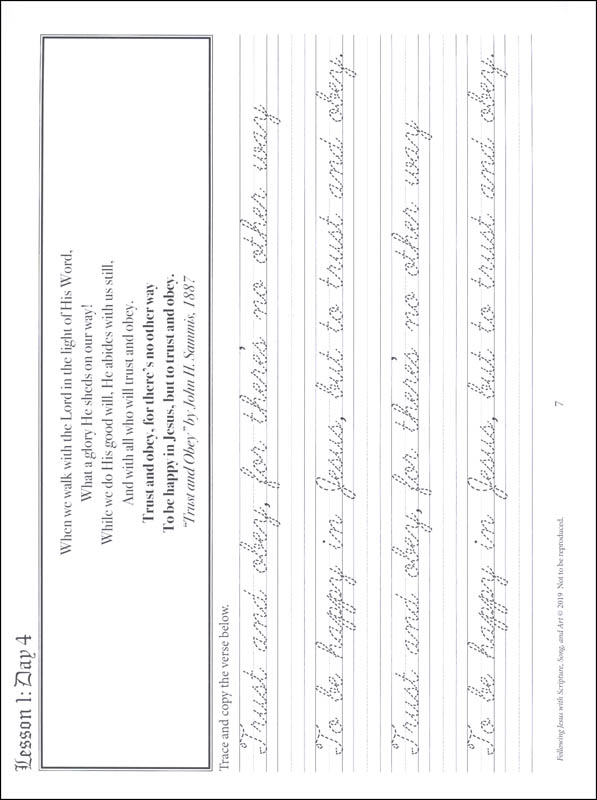 Lesson 1: Day 4
When we walk with the Lord in the light of His Word,
What a glory He sheds on our way!
While we do His good will, He abides with us still,
And with all who will trust and obey.
Trust and obey, for there's no other way
To be happy in Jesus, but to trust and obey.
"Trust and Obey" by John H. Sammis, 1887
Trace and copy the verse below.
Trust and obey, for there's no other way
To be happy in Jesus, but to trust and obey.
Trust and obey, for there's no other way
To be happy in Jesus, but to trust and obey.
Following Jesus with Scripture, Song, and Art © 2019 Not to be reproduced.
7